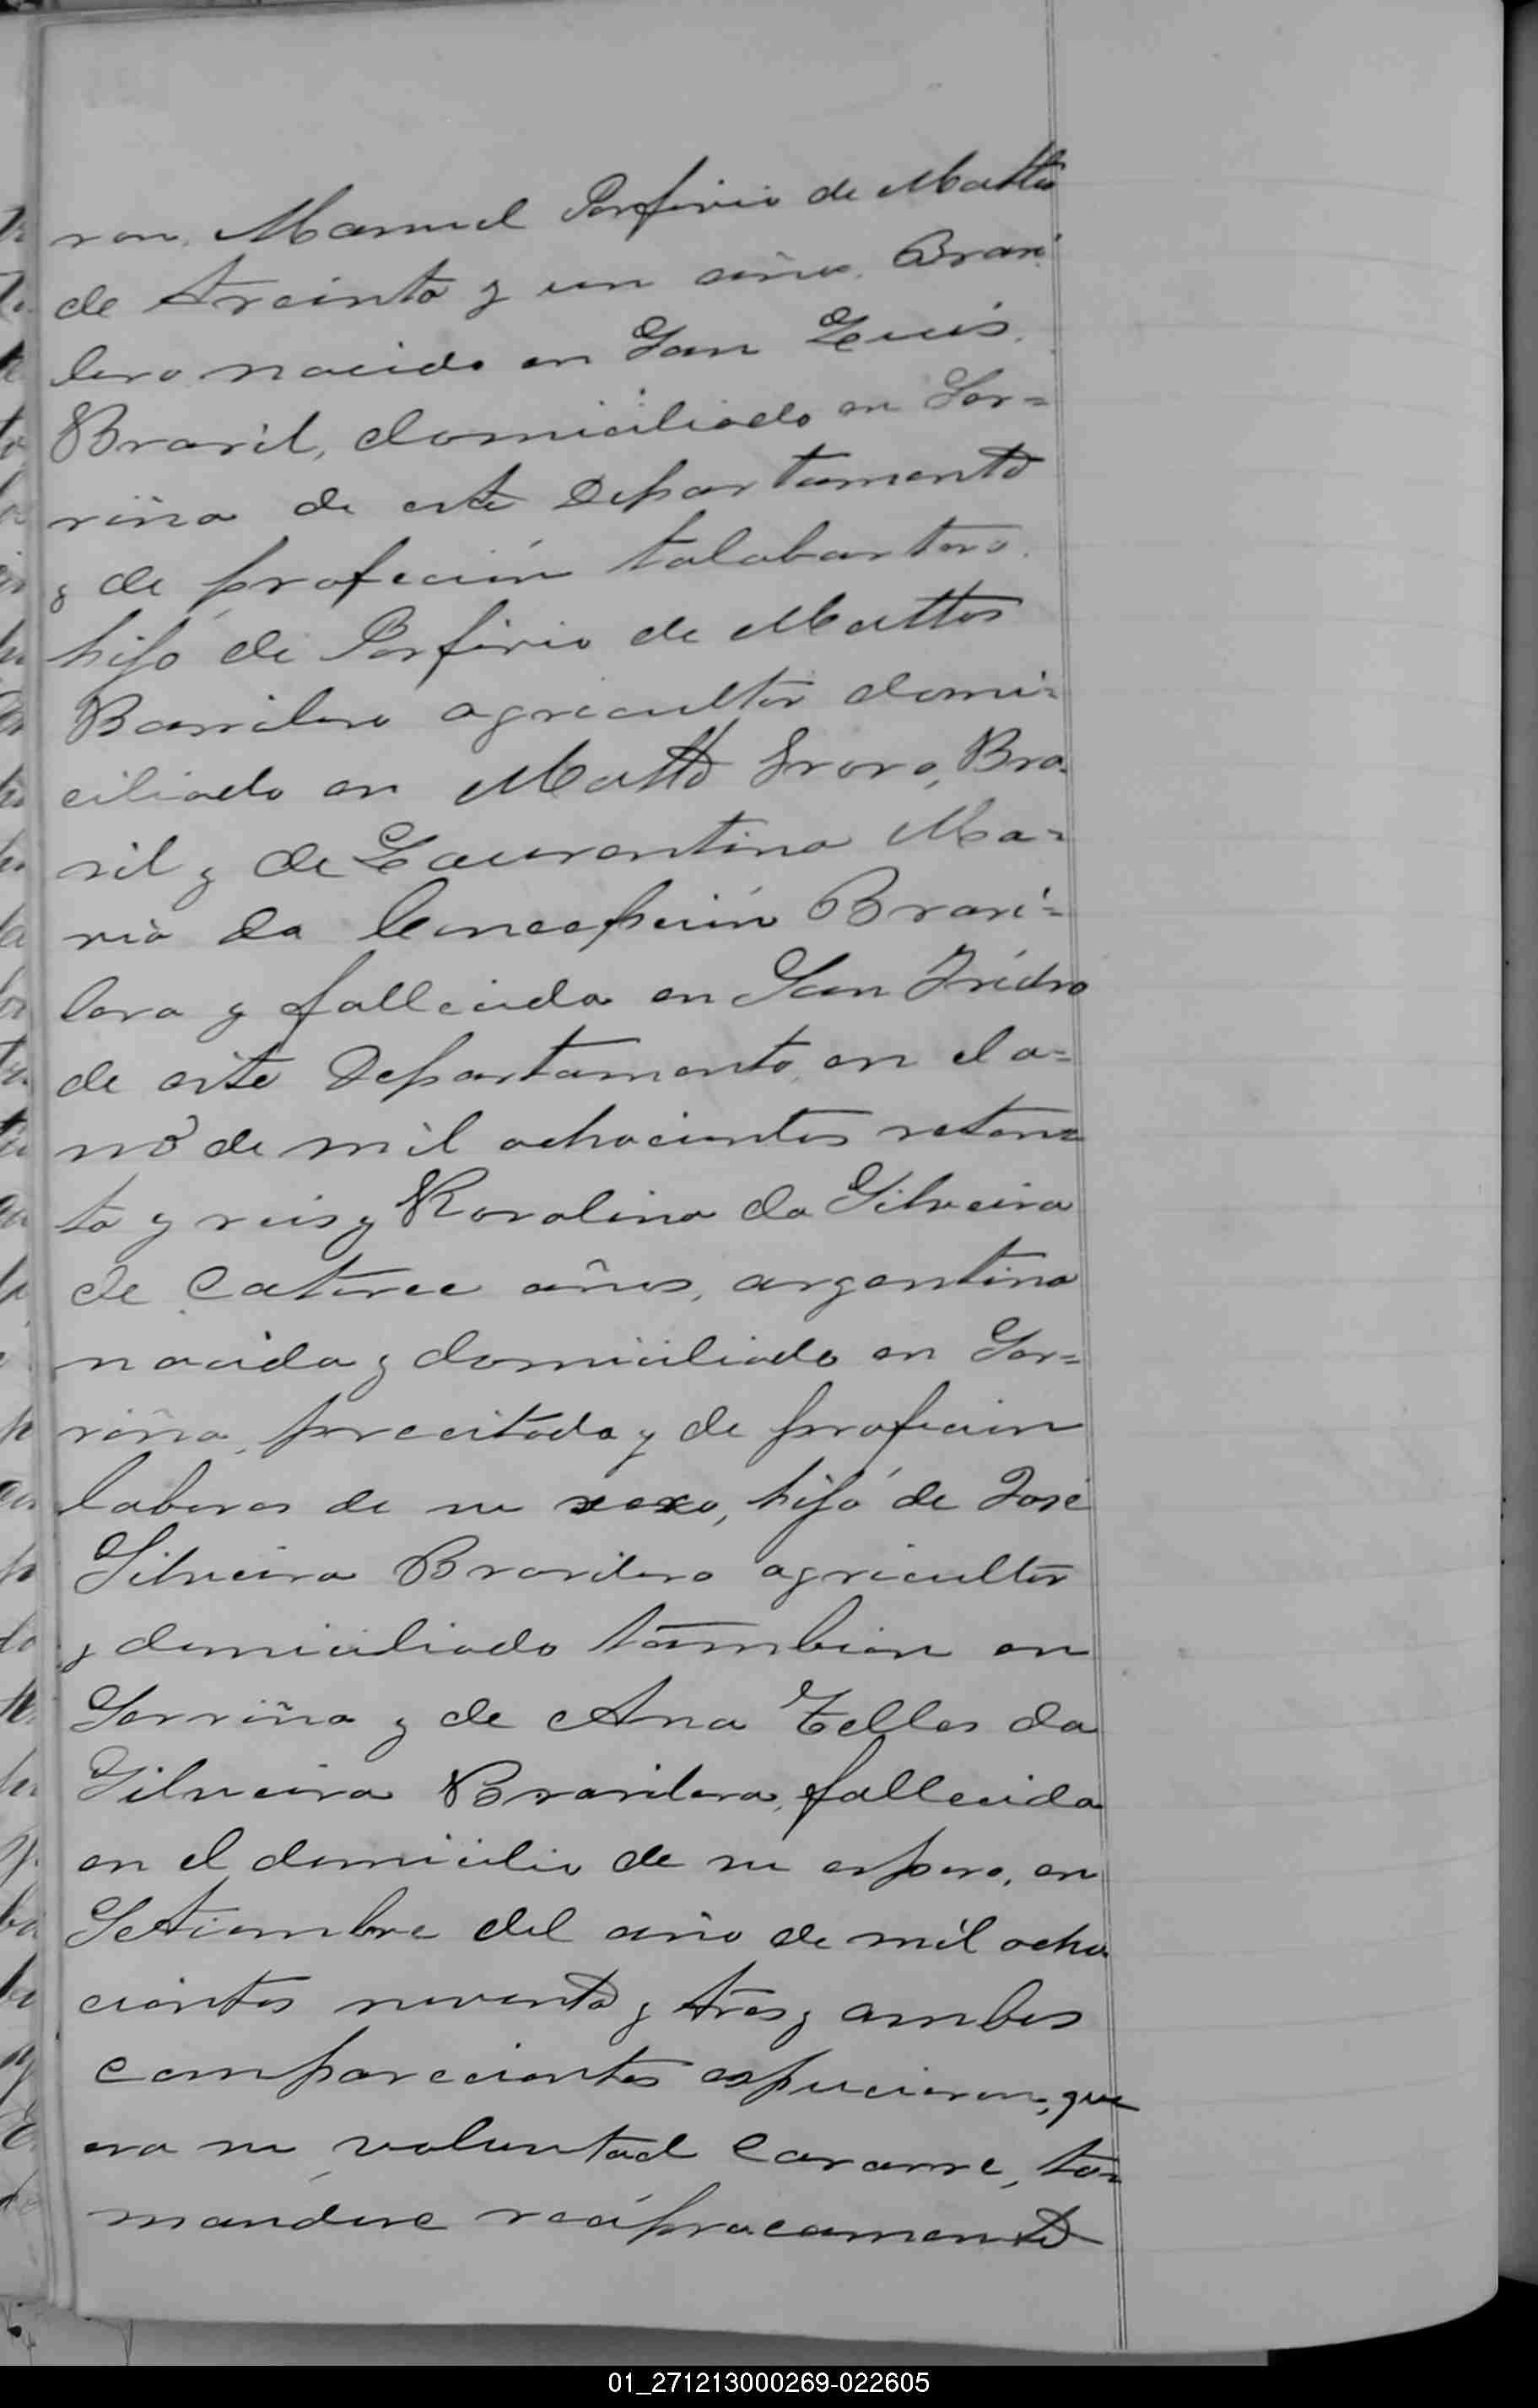 ron, Manuel Porfirio de Mattos
de treinta y un años, Brasi
lero nacido en San Luis.
Brasil, domiciliado en Sor=
riña de este Departamento
y de profeción talabartero.
hijo de Porfirio de Mattos
Brasilero agricultor domi=
ciliado en Matto Groso, Bra
sil y de Laurentina Ma=
ria da Concepción Brasi=
lera y fallecida en San Isidro
de este Departamento, en el a=
ño de mil ochocientos seten=
ta y seis y Rosalina da Silveira
de catorce años, argentina
nacida y domiciliada en Sor=
riña, precitada y de profecion
labores de su sexo, hija de José
Silveira Brasilero agricultor
y domiciliado tambien en
Sorriña y de Ana Telles da
Silveira Brasilera, fallecida
en el domicilio de su esposo, en
Setiembre del año de mil ocho
cientos noventa y tres y ambos
comparecientes espucieron, que
era su voluntad casarse, to=
mándose recíprocamente
01_271213000269-022605